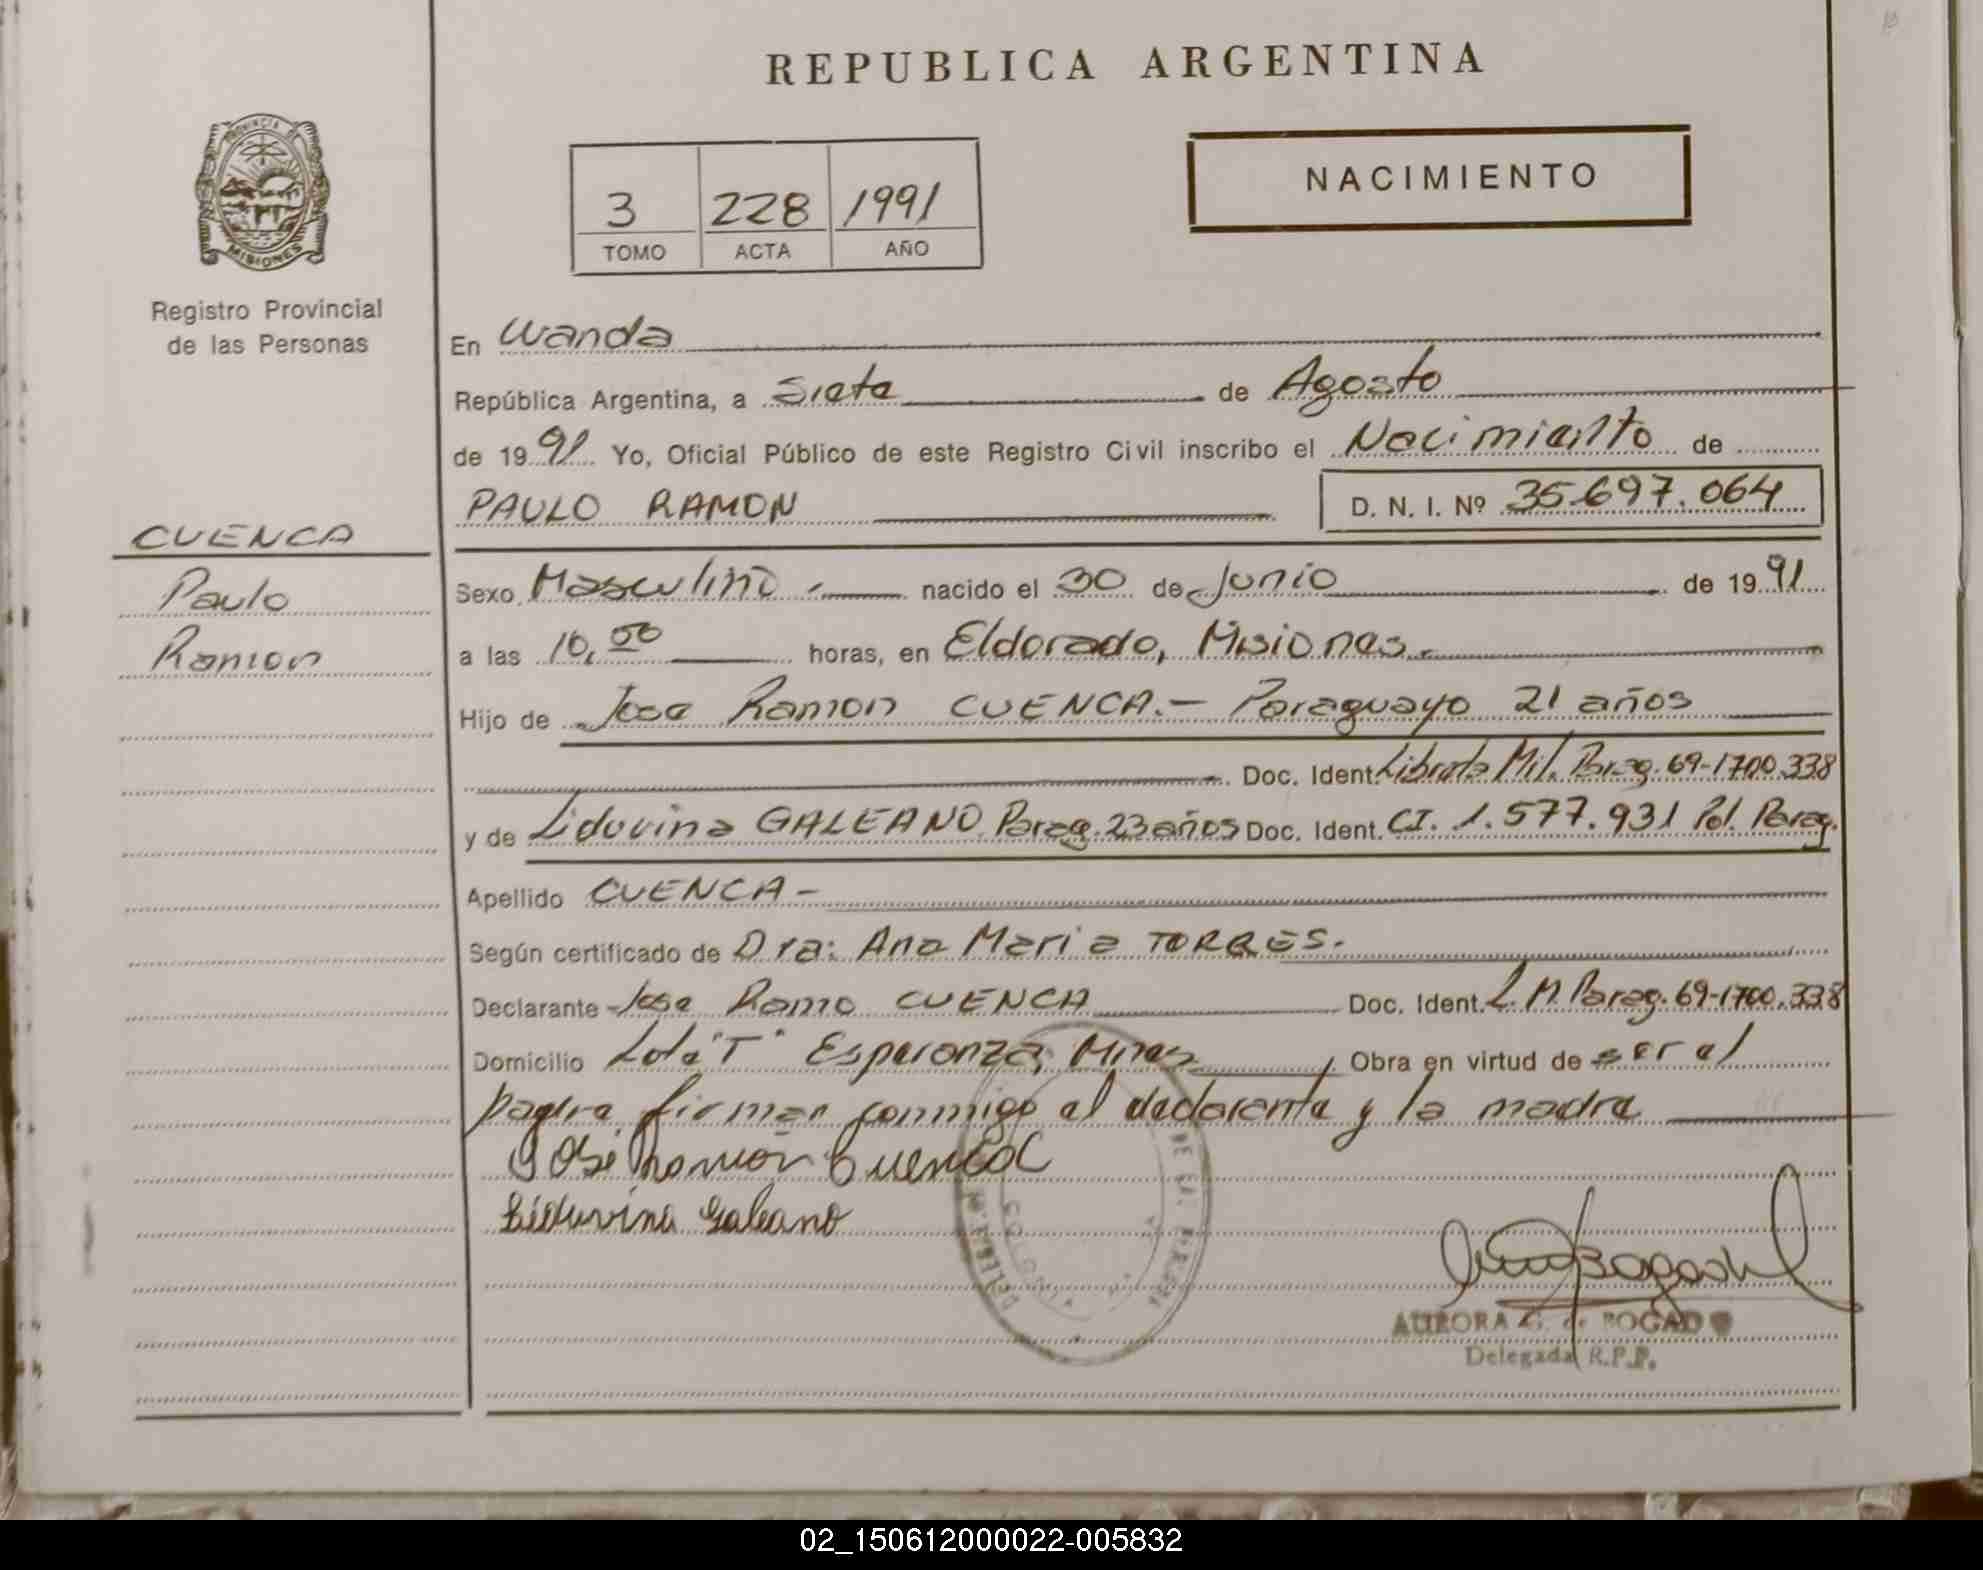 REPUBLICA ARGENTINA
PROVINCIA DE
MISIONES
Registro Provincial
de las Personas
3 228 1991
TOMO ACTA AÑO
NACIMIENTO
En Wanda
República Argentina, a Siete de Agosto
de 1991 Yo, Oficial Público de este Registro Civil inscribo el Nacimiento de
PAULO RAMON D. N. I. Nº 35.697.064
CUENCA
Paulo
Ramon
Sexo Masculino nacido el 30 de Junio de 1991
a las 10,00 horas, en Eldorado, Misiones.
Hijo de Jose Ramon CUENCA.- Paraguayo 21 años
Doc. Ident. Libreta Mil. Parag. 69-1700.338
y de Liduvina GALEANO Parag. 23 años Doc. Ident. CI. 1.577.931 Pol. Parag.
Apellido CUENCA-
Según certificado de Dra: Ana Maria TORRES.
Declarante Jose Ramo CUENCA Doc. Ident. L.M. Parag. 69-1700.338
Domicilio Lote "T" Esperanza, Mnes. Obra en virtud de ser el
padre firman conmigo el declarante y la madre
José Ramón Cuenca
Liduvina Galeano
AURORA G. de BOGADO
Delegada R.P.P.
02_150612000022-005832